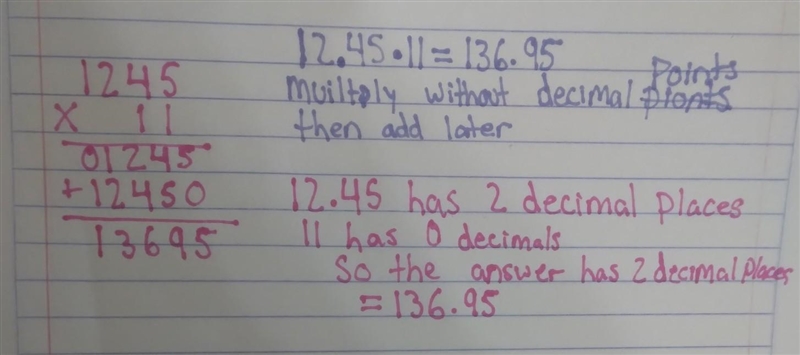 12.45·11=136.95
muiltply without decimal pionts Points
then add later
1245
X 11
01245
+12450
13695
12.45 has 2 decimal places
11 has 0 decimals
So the answer has 2 decimal places
=136.95